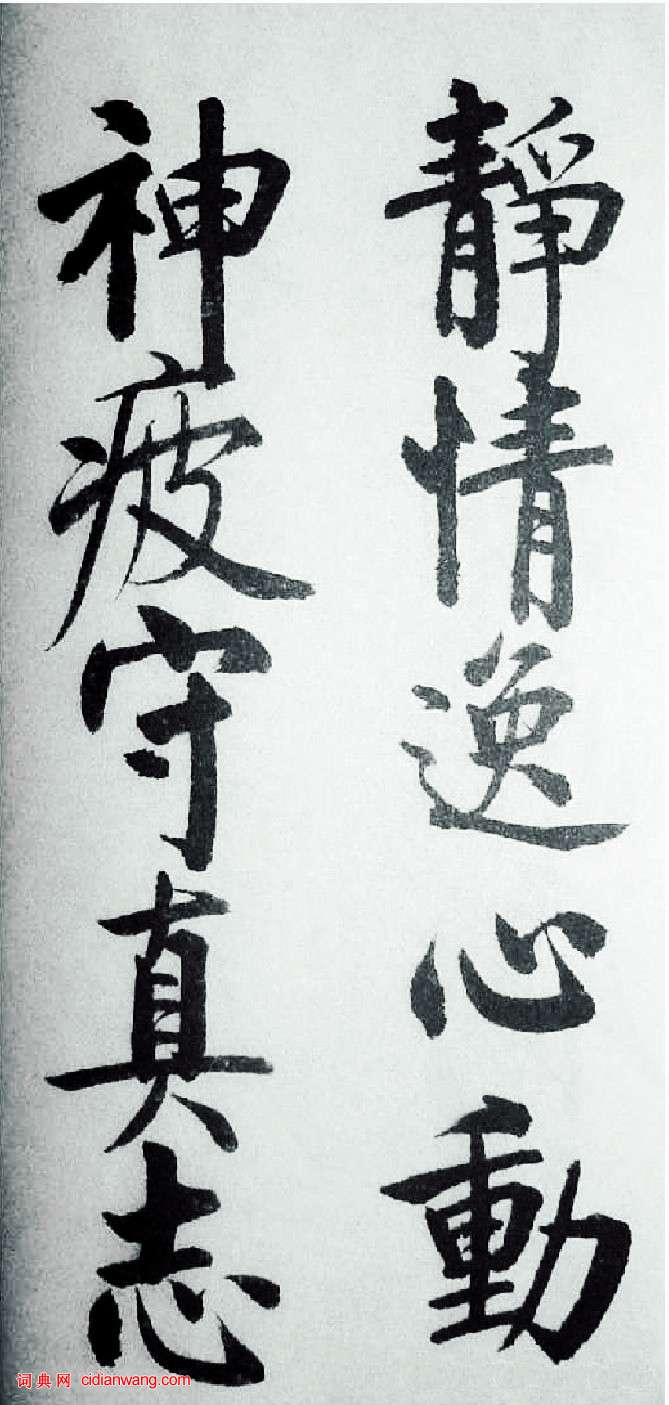 靜情逸心動
神疲守真志
词典网 cidianwang.com